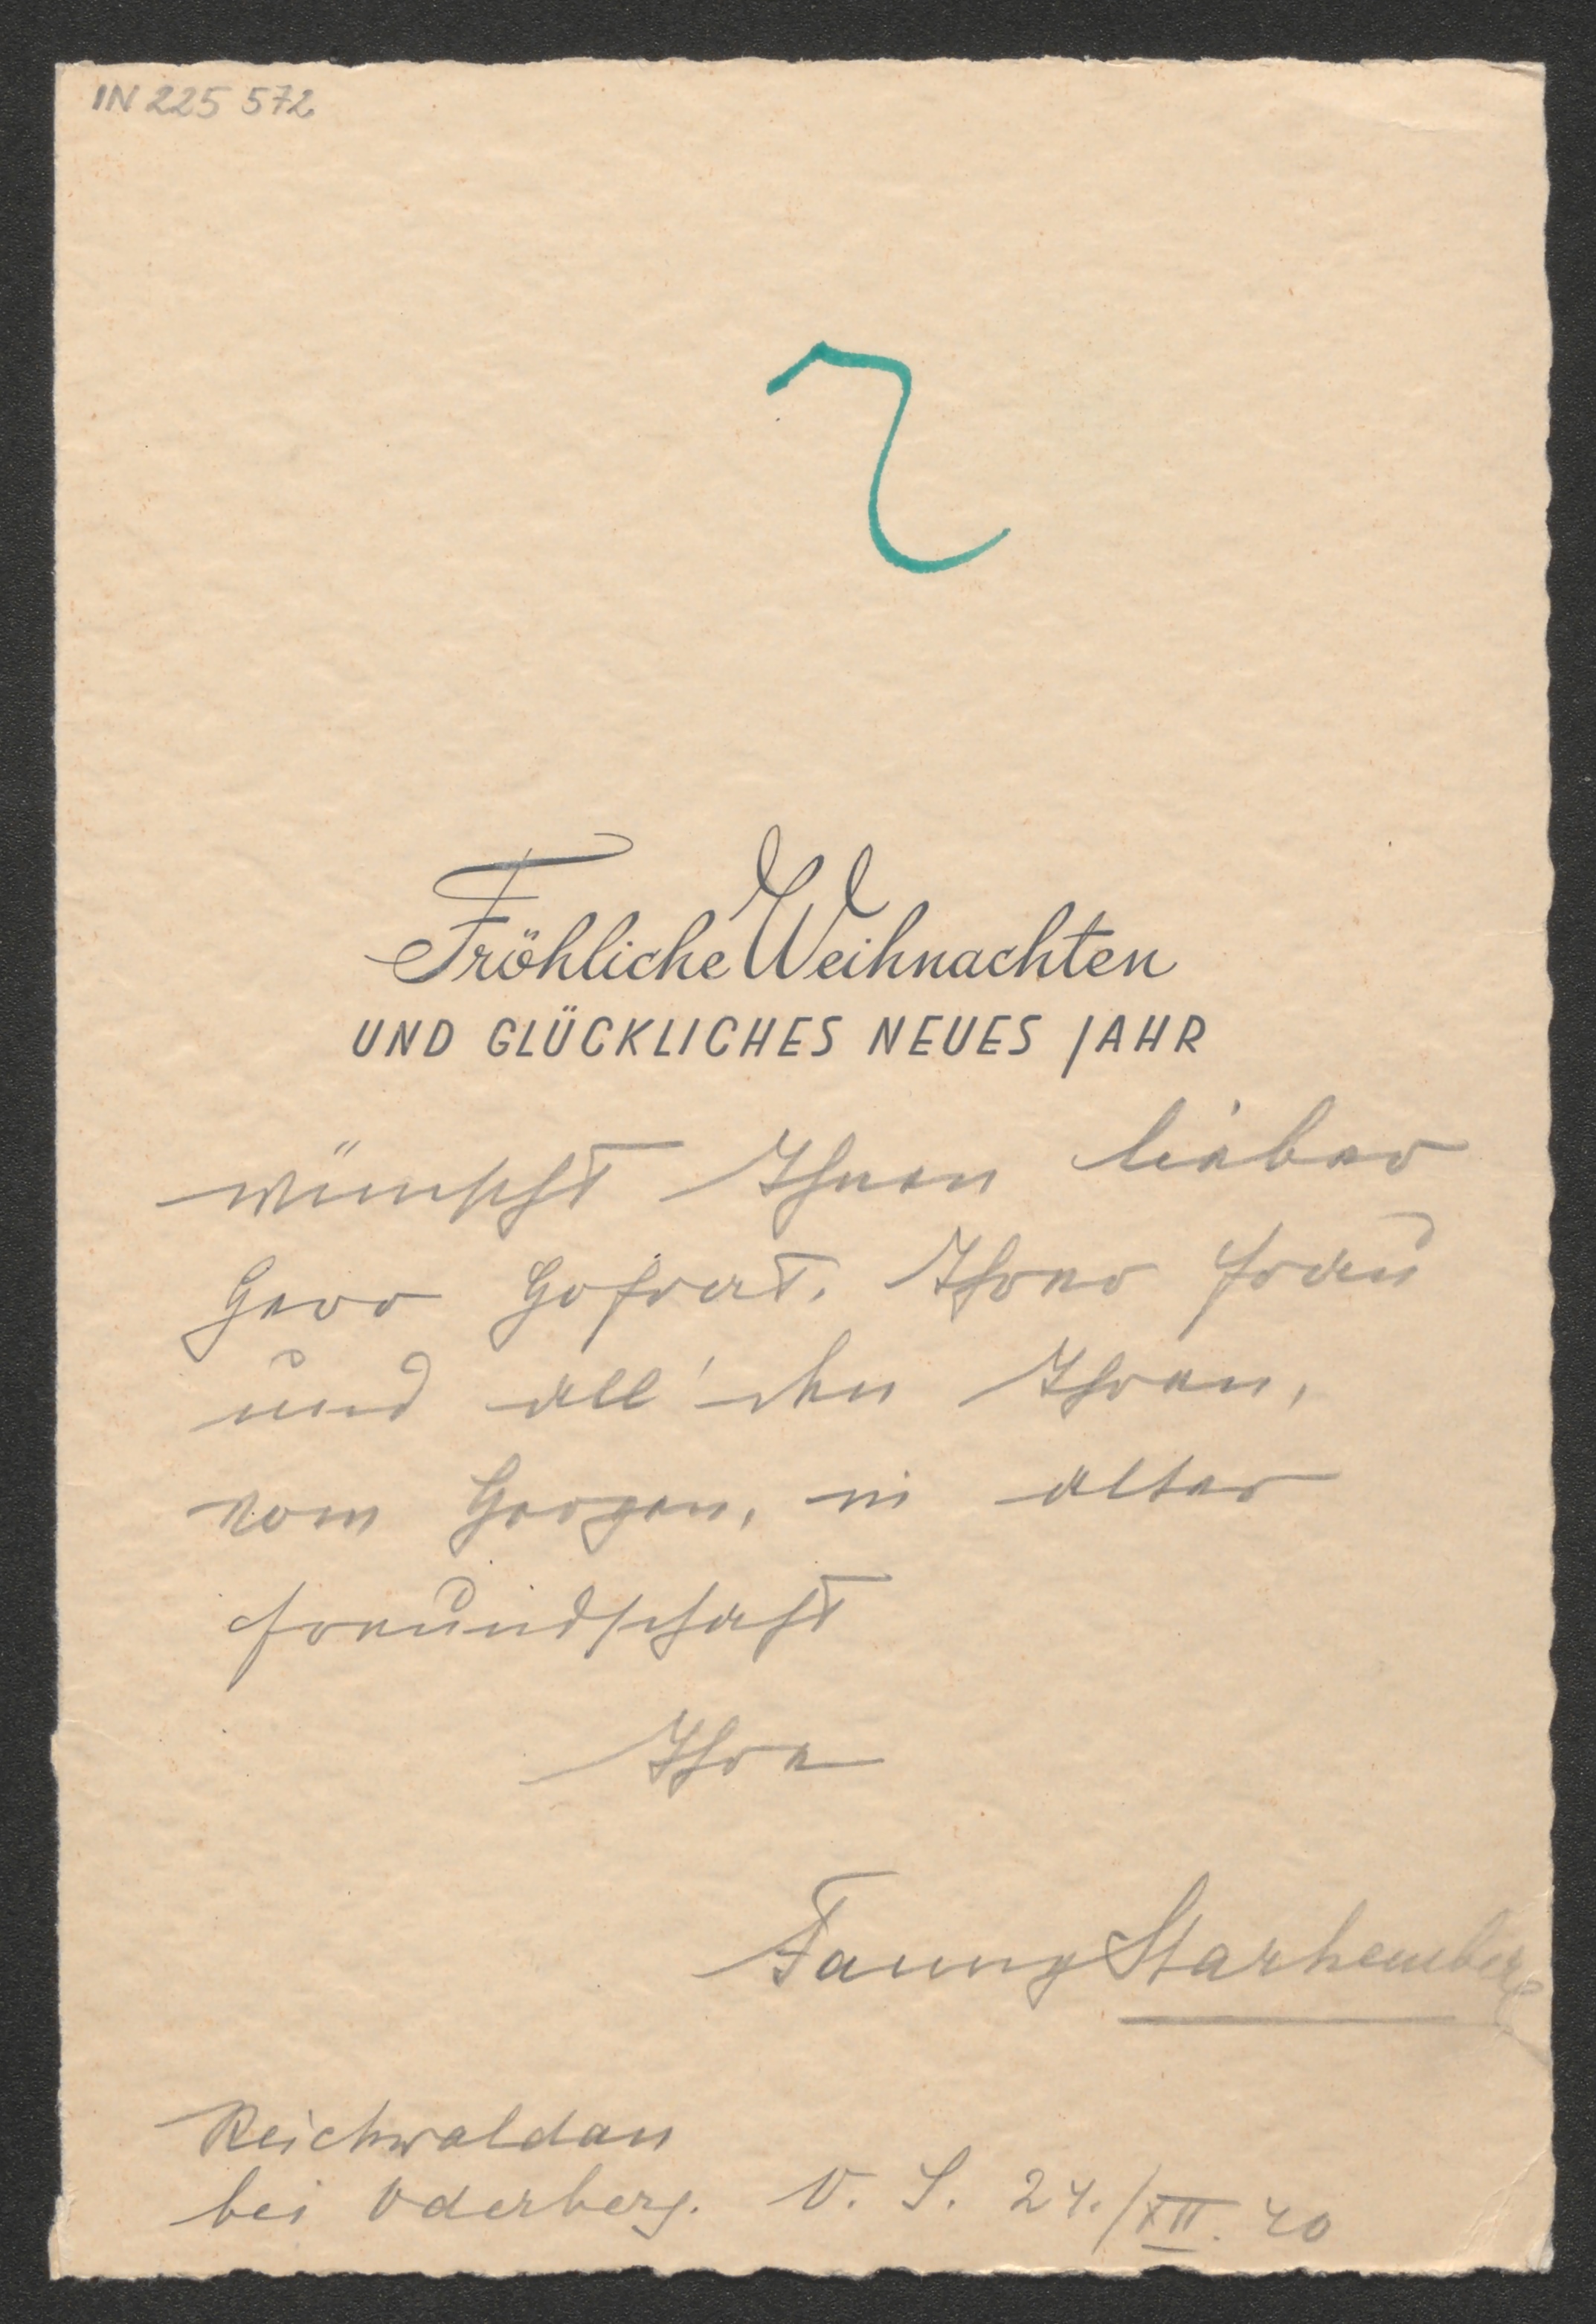 IN 225 572
Fröhliche Weihnachten
UND GLÜCKLICHES NEUES JAHR
wünscht Ihnen lieber
Herr Hofrat. Ihrer Frau
und all' den Ihren,
vom Herzen, in alter
Freundschaft
Ihre
Fanny Starhemberg
Reichwaldau
bei Oderberg. O. S. 24./XII. 40